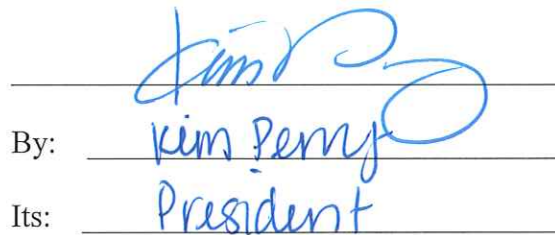 Kim Perry
By: Kim Perry
Its: President